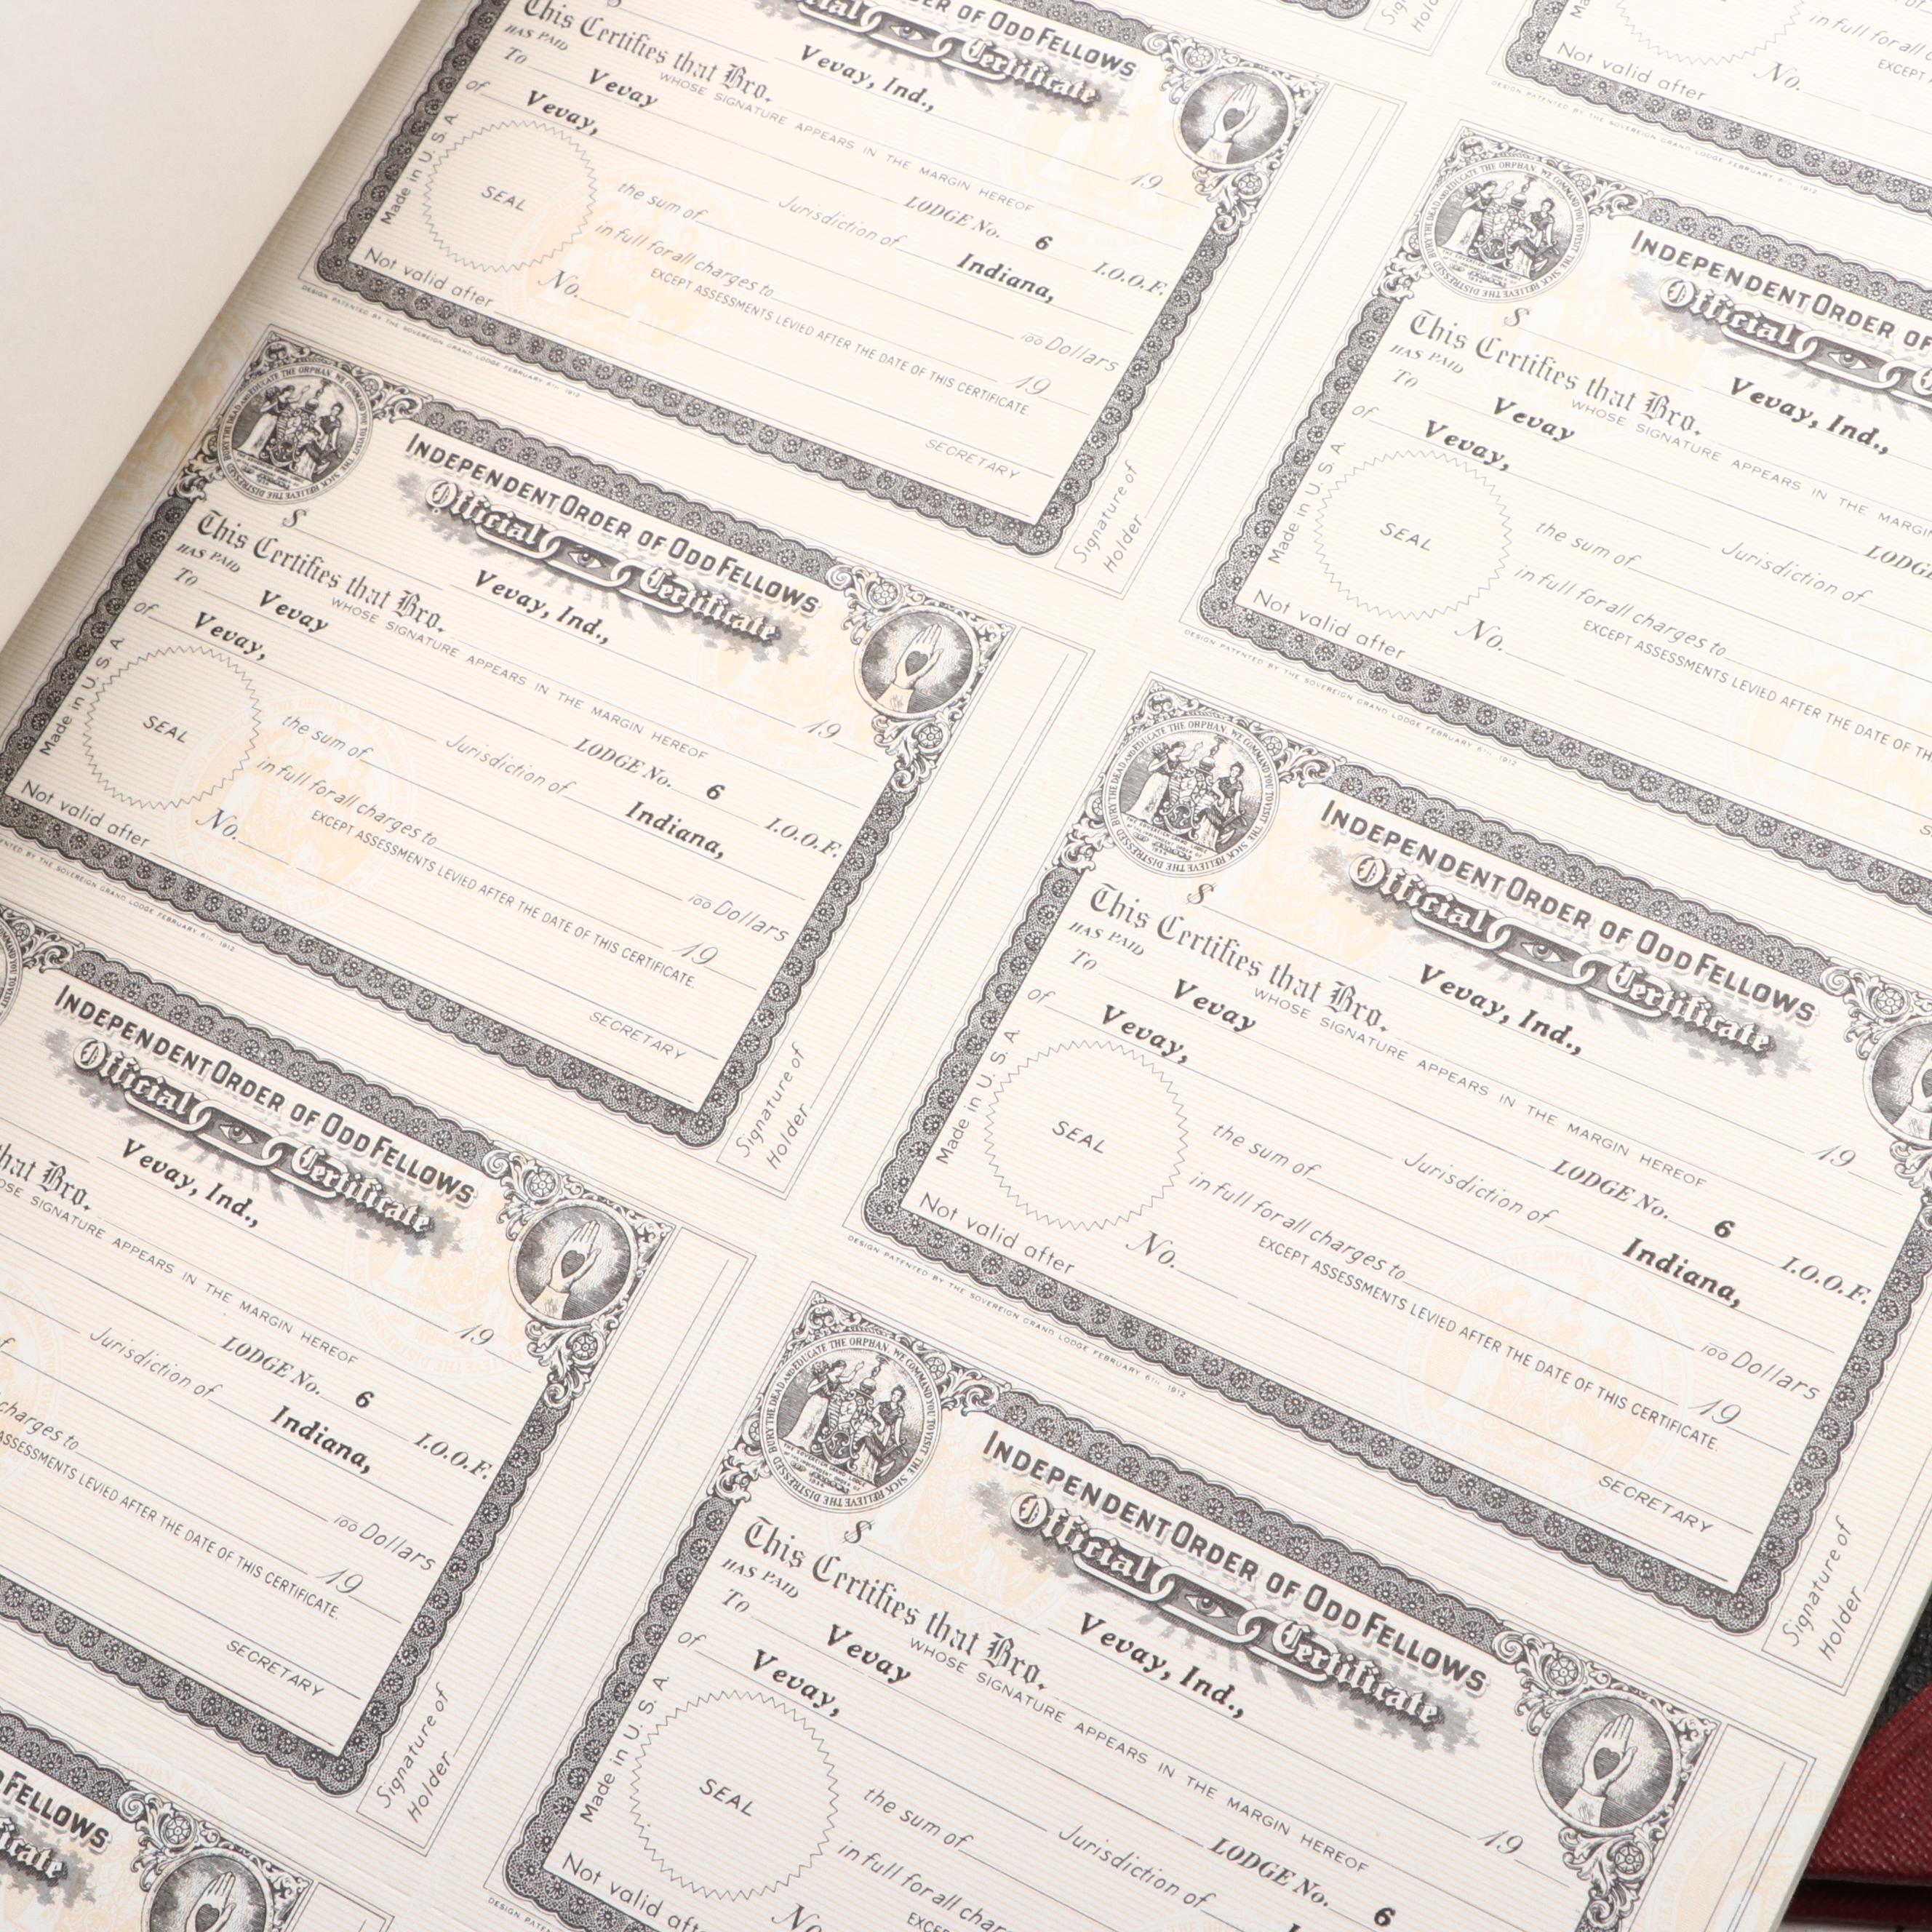 ER OF ODD FELLOWS
ial Certificate
This Certifies that Bro.
Vevay, Ind., 19
HAS PAID WHOSE SIGNATURE APPEARS IN THE MARGIN HEREOF
To Vevay LODGE No. 6 I.O.O.F.
of Vevay, Jurisdiction of Indiana,
the sum of 100 Dollars
SEAL
in full for all charges to 19
EXCEPT ASSESSMENTS LEVIED AFTER THE DATE OF THIS CERTIFICATE.
Made in U. S. A.
Not valid after No.
SECRETARY
Signature of
Holder
DESIGN PATENTED BY THE SOVEREIGN GRAND LODGE FEBRUARY 6TH, 1912
in full for all
EXCEPT
Not valid after No.
DESIGN PATENTED BY THE SOVEREIGN GRAND LODGE FEBRUARY 6TH, 1912
BURY THE DEAD AND EDUCATE THE ORPHAN. WE COMMAND YOU TO VISIT THE SICK RELIEVE THE DISTRESSED
INDEPENDENT ORDER OF ODD FELLOWS
Official Certificate
$ Vevay, Ind., 19
This Certifies that Bro.
HAS PAID WHOSE SIGNATURE APPEARS IN THE MARGIN HEREOF
To Vevay LODGE No. 6 I.O.O.F.
of Vevay, Jurisdiction of Indiana,
the sum of 100 Dollars
SEAL
in full for all charges to 19
EXCEPT ASSESSMENTS LEVIED AFTER THE DATE OF THIS CERTIFICATE.
Made in U. S. A.
Not valid after No.
SECRETARY
Signature of
Holder
ENTED BY THE SOVEREIGN GRAND LODGE FEBRUARY 6TH, 1912
BURY THE DEAD AND EDUCATE THE ORPHAN. WE COMMAND YOU TO VISIT THE SICK RELIEVE THE DISTRESSED
INDEPENDENT ORDER OF
Official
$ Vevay, Ind.,
This Certifies that Bro.
HAS PAID WHOSE SIGNATURE APPEARS IN THE MARGIN
To Vevay LODGE
of Vevay, Jurisdiction of
the sum of
SEAL
in full for all charges to
EXCEPT ASSESSMENTS LEVIED AFTER THE DATE OF TH
Made in U. S. A.
Not valid after No.
DESIGN PATENTED BY THE SOVEREIGN GRAND LODGE FEBRUARY 6TH, 1912
INDEPENDENT ORDER OF ODD FELLOWS
Official Certificate
Vevay, Ind., 19
hat Bro.
OSE SIGNATURE APPEARS IN THE MARGIN HEREOF
LODGE No. 6 I.O.O.F.
Jurisdiction of Indiana,
100 Dollars
charges to 19
ASSESSMENTS LEVIED AFTER THE DATE OF THIS CERTIFICATE.
SECRETARY
Signature of
Holder
BURY THE DEAD AND EDUCATE THE ORPHAN. WE COMMAND YOU TO VISIT THE SICK RELIEVE THE DISTRESSED
INDEPENDENT ORDER OF ODD FELLOWS
Official Certificate
$ Vevay, Ind., 19
This Certifies that Bro.
HAS PAID WHOSE SIGNATURE APPEARS IN THE MARGIN HEREOF
To Vevay LODGE No. 6 I.O.O.F.
of Vevay, Jurisdiction of Indiana,
the sum of 100 Dollars
SEAL
in full for all charges to 19
EXCEPT ASSESSMENTS LEVIED AFTER THE DATE OF THIS CERTIFICATE.
Made in U. S. A.
Not valid after No.
SECRETARY
Signature of
Holder
DESIGN PATENTED BY THE SOVEREIGN GRAND LODGE FEBRUARY 6TH, 1912
FELLOWS
icate
BURY THE DEAD AND EDUCATE THE ORPHAN. WE COMMAND YOU TO VISIT THE SICK RELIEVE THE DISTRESSED
INDEPENDENT ORDER OF ODD FELLOWS
Official Certificate
$ Vevay, Ind., 19
This Certifies that Bro.
HAS PAID WHOSE SIGNATURE APPEARS IN THE MARGIN HEREOF
To Vevay LODGE No. 6
of Vevay, Jurisdiction of
the sum of
SEAL
in full for all char
EXCE
Made in U. S. A.
Not valid aft No.
DESIGN PATEN